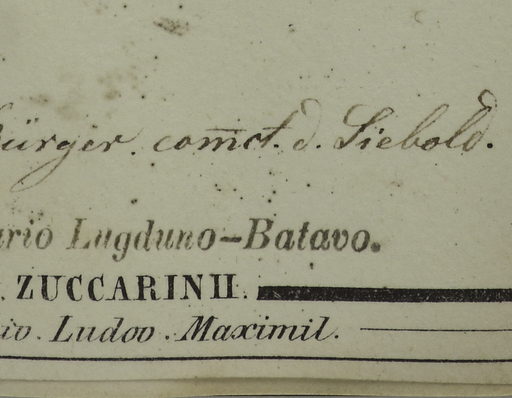 Bürger. com̅ct. d. Siebold.
ario Lugduno-Batavo.
. ZUCCARINII.
io. Ludov. Maximil.